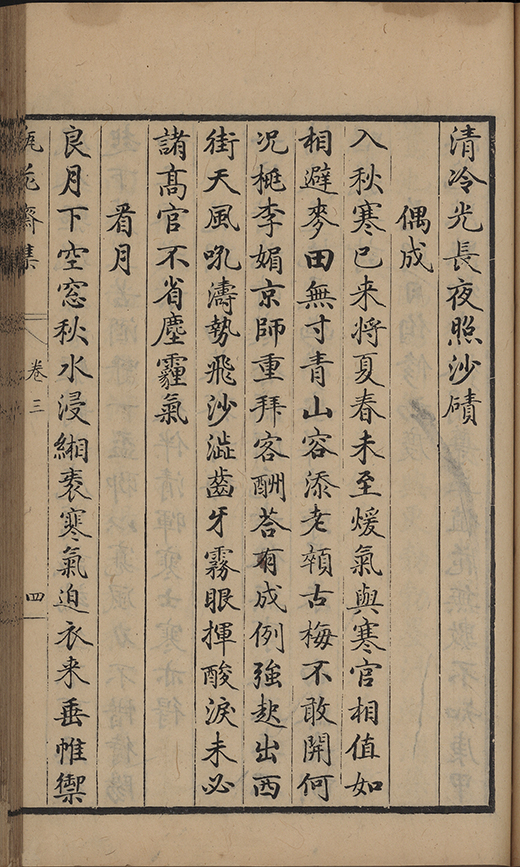 清冷光長夜照沙磧
偶成
入秋寒已来将夏春未至煖氣與寒官相值如
相避麥田無寸青山容添老顇古梅不敢開何
况桃李媚京師重拜客酬荅有成例強趂出西
街天風吼濤勢飛沙澁齒牙霧眼揮酸淚未必
諸髙官不省塵霾氣
看月
良月下空窓秋水浸緗袠寒氣迫衣来垂帷禦
瓶花齋集
卷三
四